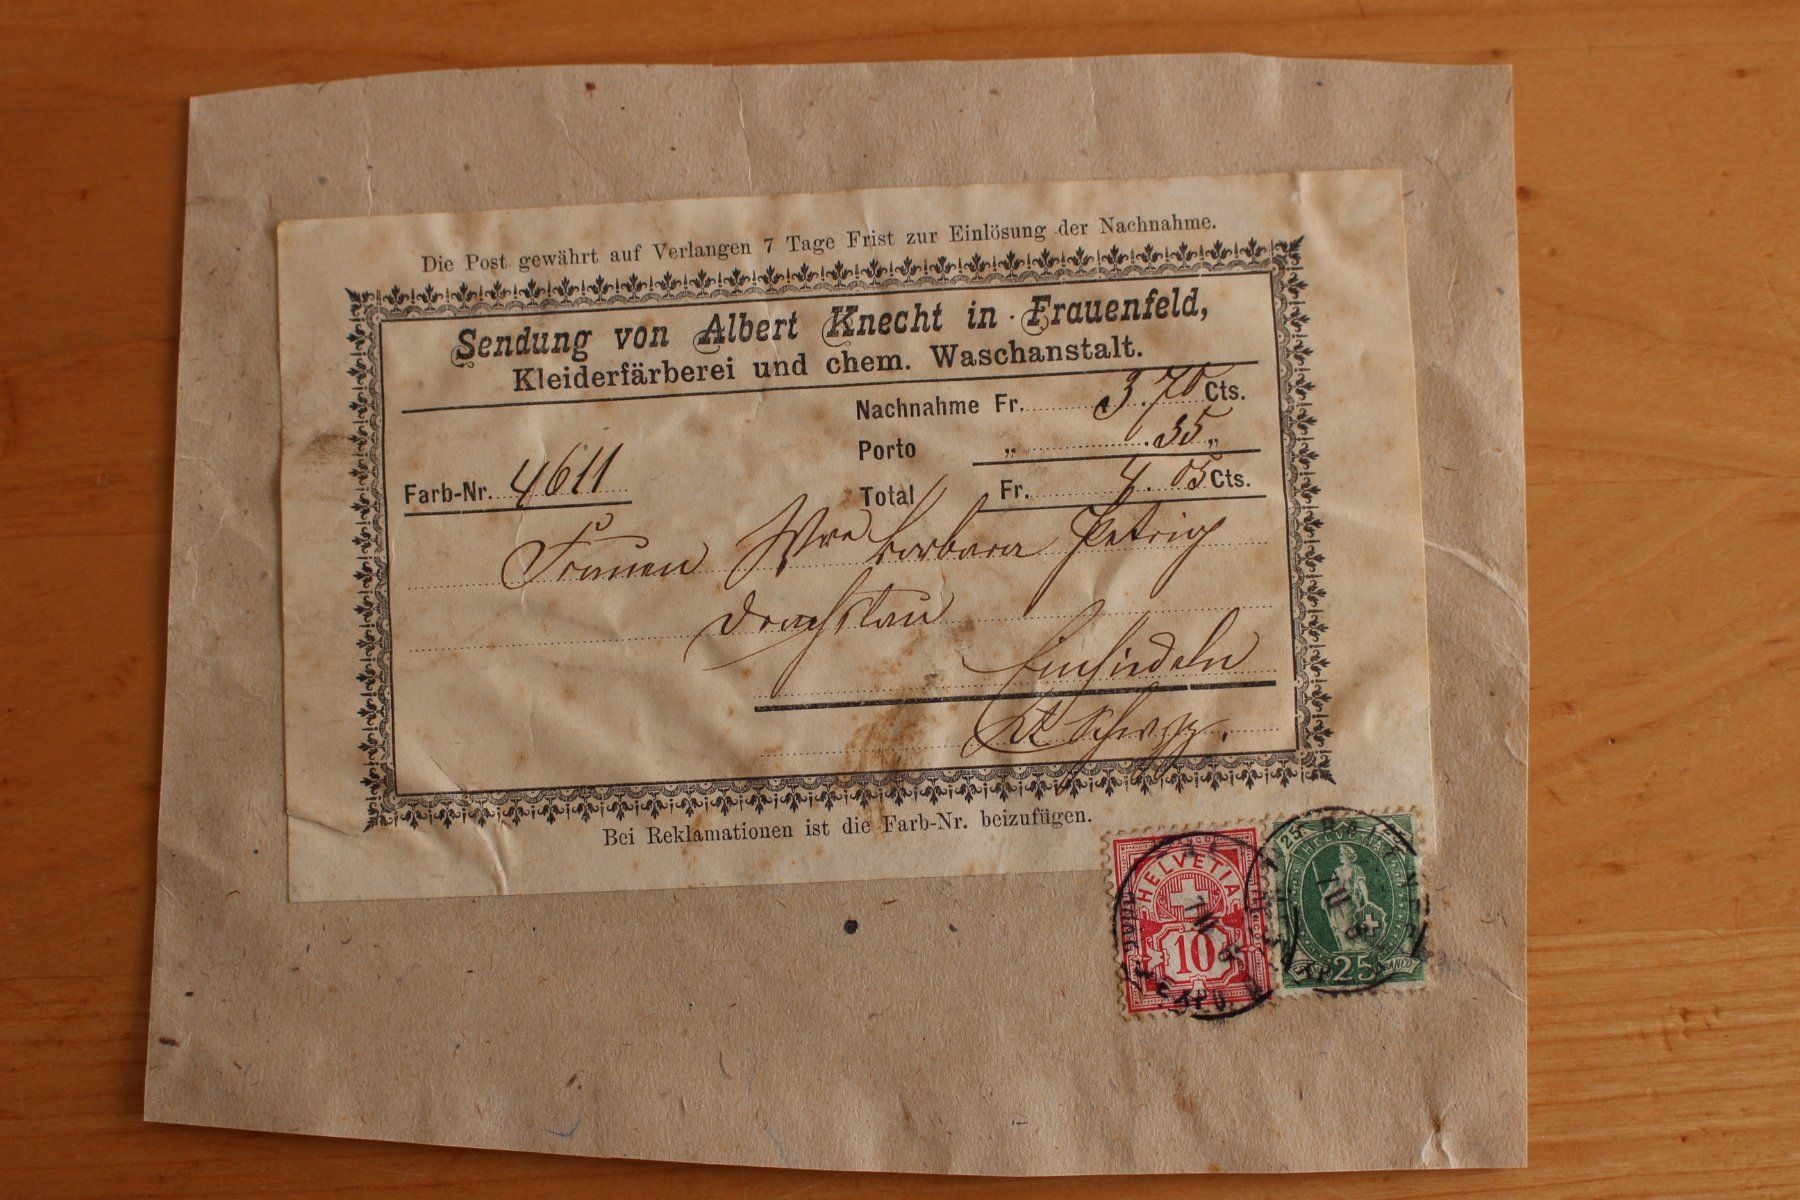 Die Post gewährt auf Verlangen 7 Tage Frist zur Einlösung der Nachnahme.
Sendung von Albert Knecht in Frauenfeld,
Kleiderfärberei und chem. Waschanstalt.
Nachnahme Fr. 3.70 Cts.
Porto „ .35 „
Farb-Nr. 4611 Total Fr. 4.05 Cts.
Frauen Wwe Barbara Petrig
Einsiedeln
Kt Schwyz.
Bei Reklamationen ist die Farb-Nr. beizufügen.
FRANCO
HELVETIA
10
25 25
HELVETIA
25
FRANCO